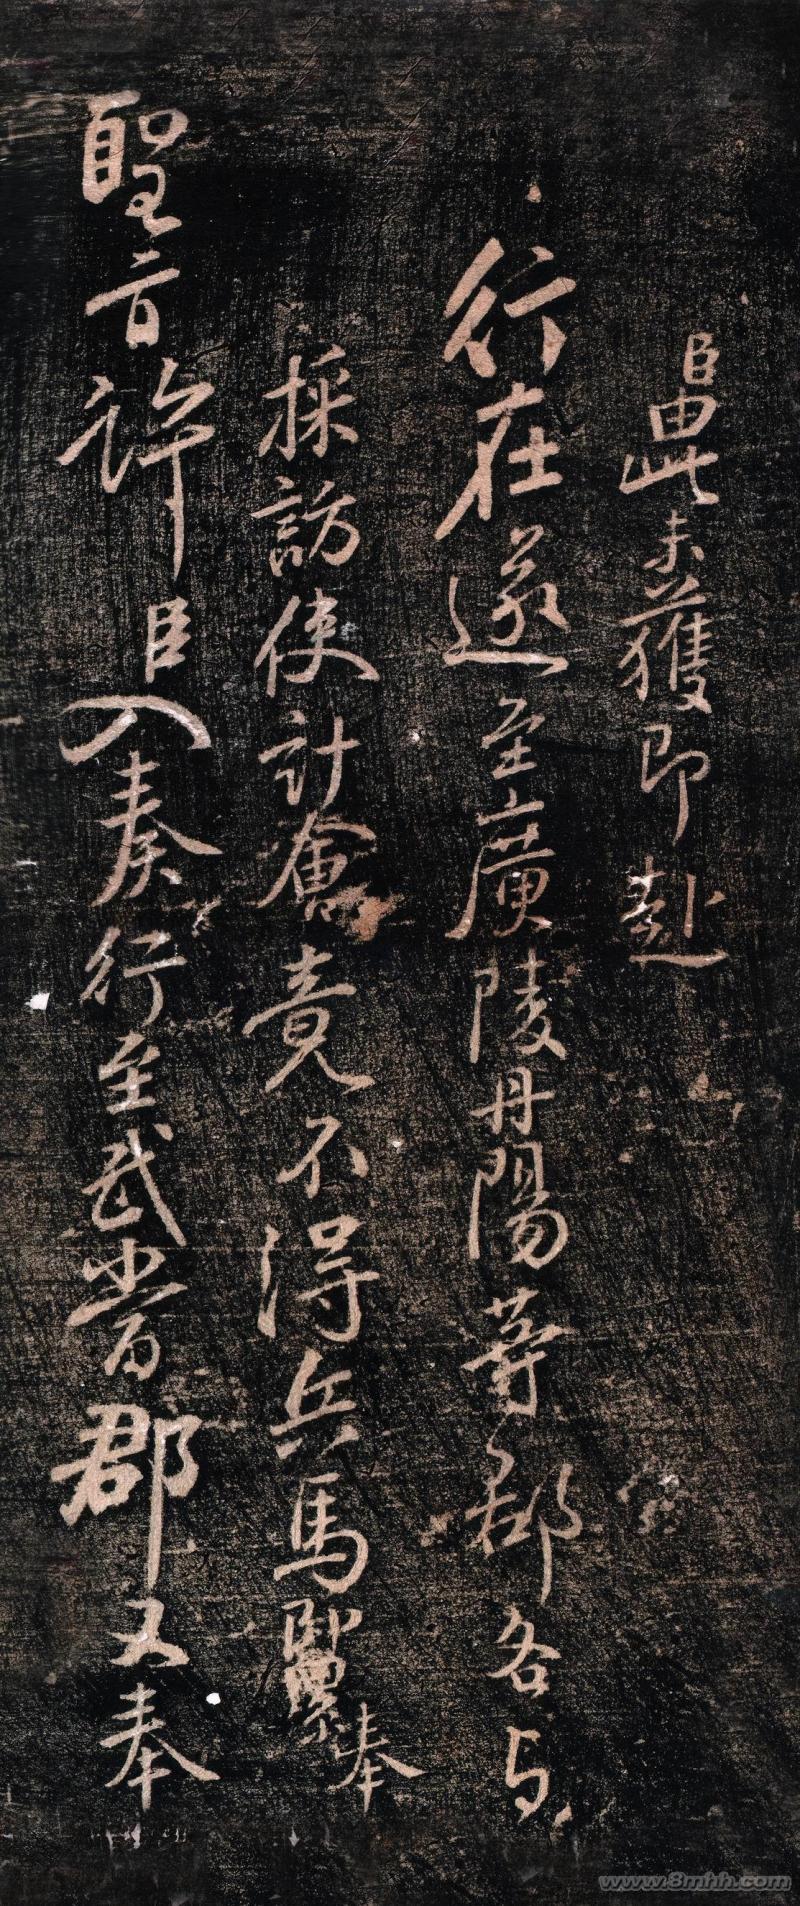 臣由此未獲即赴
行在遂至廣陵丹陽等郡各与
採訪使計會竟不得兵馬累奉
聖旨許臣入奏行至武當郡又奉
www.8mhh.com